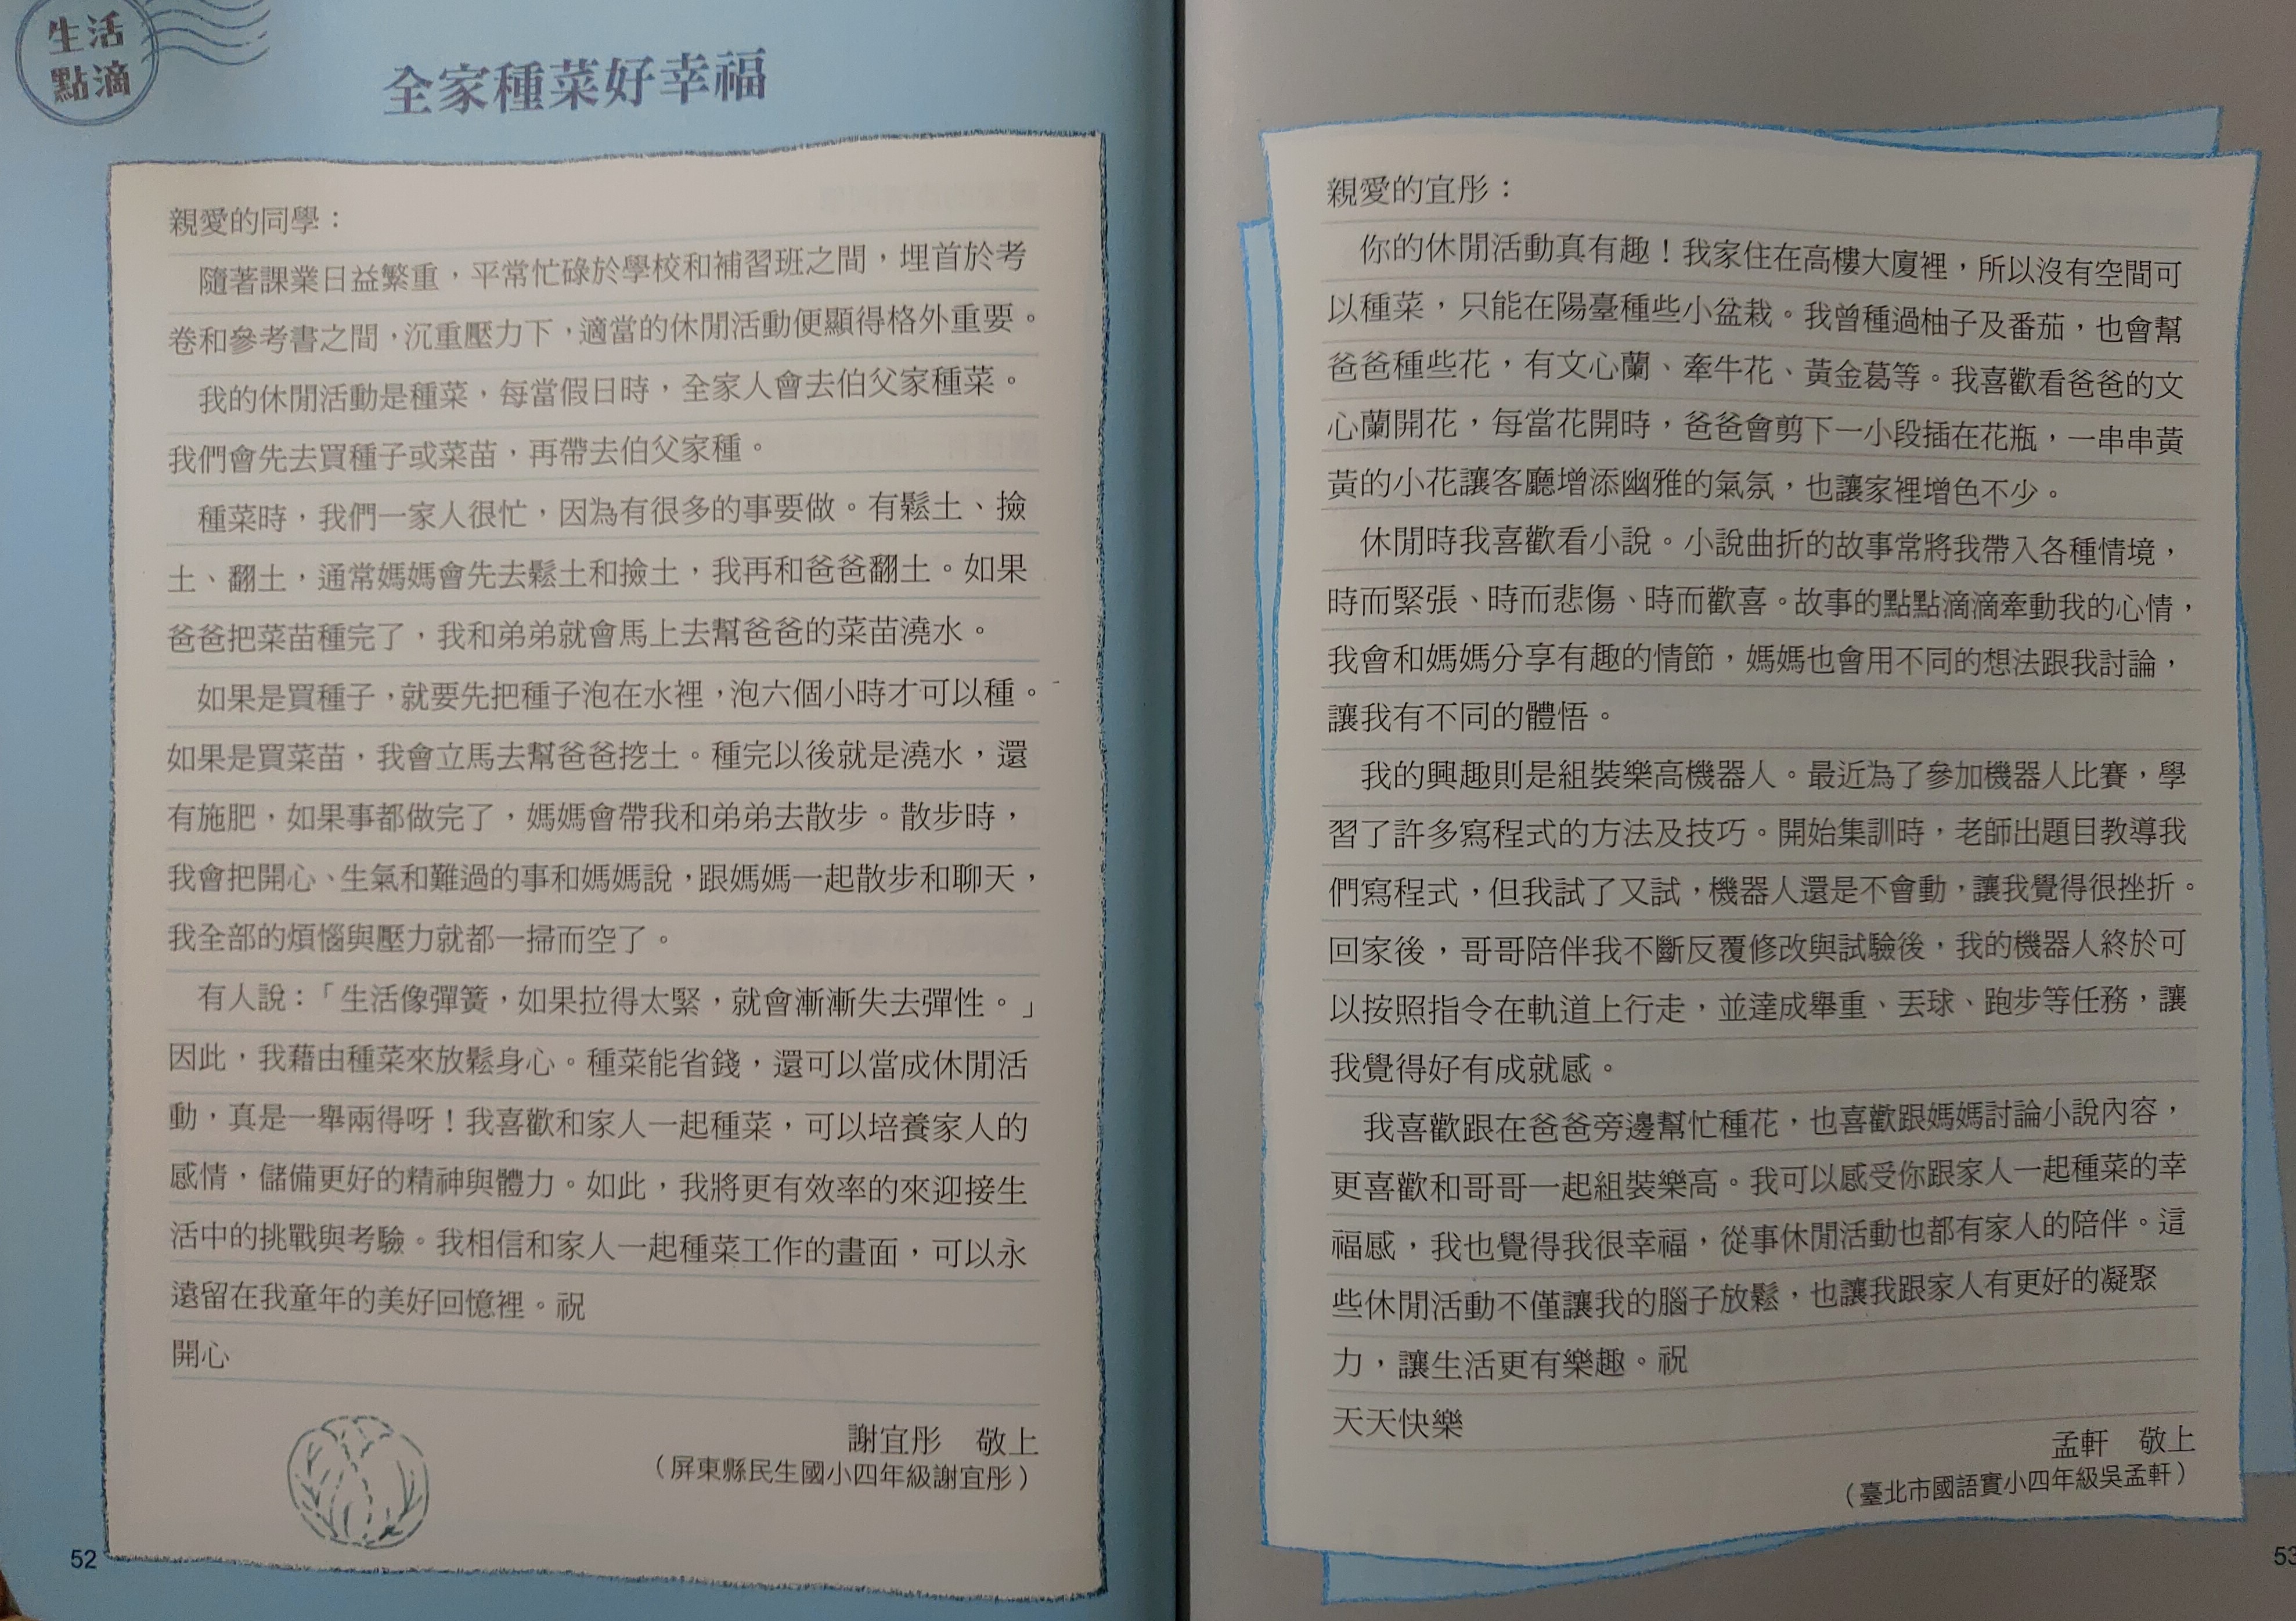 生活
點滴
全家種菜好幸福
親愛的同學：
隨著課業日益繁重，平常忙碌於學校和補習班之間，埋首於考
卷和參考書之間，沉重壓力下，適當的休閒活動便顯得格外重要。
我的休閒活動是種菜，每當假日時，全家人會去伯父家種菜。
我們會先去買種子或菜苗，再帶去伯父家種。
種菜時，我們一家人很忙，因為有很多的事要做。有鬆土、撿
土、翻土，通常媽媽會先去鬆土和撿土，我再和爸爸翻土。如果
爸爸把菜苗種完了，我和弟弟就會馬上去幫爸爸的菜苗澆水。
如果是買種子，就要先把種子泡在水裡，泡六個小時才可以種。
如果是買菜苗，我會立馬去幫爸爸挖土。種完以後就是澆水，還
有施肥，如果事都做完了，媽媽會帶我和弟弟去散步。散步時，
我會把開心、生氣和難過的事和媽媽說，跟媽媽一起散步和聊天，
我全部的煩惱與壓力就都一掃而空了。
有人說：「生活像彈簧，如果拉得太緊，就會漸漸失去彈性。」
因此，我藉由種菜來放鬆身心。種菜能省錢，還可以當成休閒活
動，真是一舉兩得呀！我喜歡和家人一起種菜，可以培養家人的
感情，儲備更好的精神與體力。如此，我將更有效率的來迎接生
活中的挑戰與考驗。我相信和家人一起種菜工作的畫面，可以永
遠留在我童年的美好回憶裡。祝
開心
謝宜彤　敬上
（屏東縣民生國小四年級謝宜彤）
52
親愛的宜彤：
你的休閒活動真有趣！我家住在高樓大廈裡，所以沒有空間可
以種菜，只能在陽臺種些小盆栽。我曾種過柚子及番茄，也會幫
爸爸種些花，有文心蘭、牽牛花、黃金葛等。我喜歡看爸爸的文
心蘭開花，每當花開時，爸爸會剪下一小段插在花瓶，一串串黃
黃的小花讓客廳增添幽雅的氣氛，也讓家裡增色不少。
休閒時我喜歡看小說。小說曲折的故事常將我帶入各種情境，
時而緊張、時而悲傷、時而歡喜。故事的點點滴滴牽動我的心情，
我會和媽媽分享有趣的情節，媽媽也會用不同的想法跟我討論，
讓我有不同的體悟。
我的興趣則是組裝樂高機器人。最近為了參加機器人比賽，學
習了許多寫程式的方法及技巧。開始集訓時，老師出題目教導我
們寫程式，但我試了又試，機器人還是不會動，讓我覺得很挫折。
回家後，哥哥陪伴我不斷反覆修改與試驗後，我的機器人終於可
以按照指令在軌道上行走，並達成舉重、丟球、跑步等任務，讓
我覺得好有成就感。
我喜歡跟在爸爸旁邊幫忙種花，也喜歡跟媽媽討論小說內容，
更喜歡和哥哥一起組裝樂高。我可以感受你跟家人一起種菜的幸
福感，我也覺得我很幸福，從事休閒活動也都有家人的陪伴。這
些休閒活動不僅讓我的腦子放鬆，也讓我跟家人有更好的凝聚
力，讓生活更有樂趣。祝
天天快樂
孟軒　敬上
（臺北市國語實小四年級吳孟軒）
53